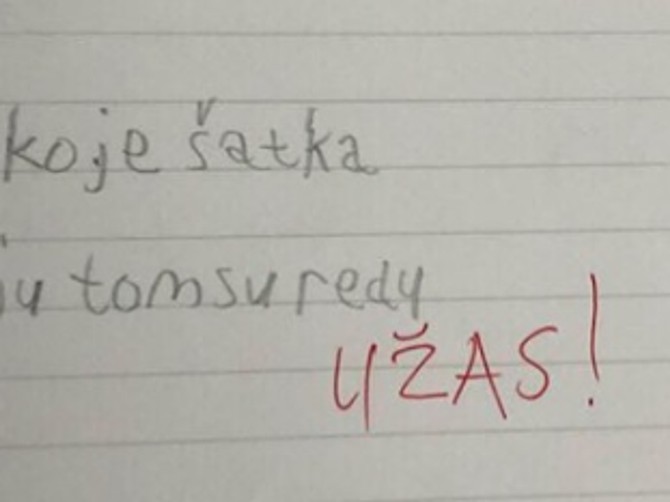 koje šatka
ju tomsuredu
UŽAS!